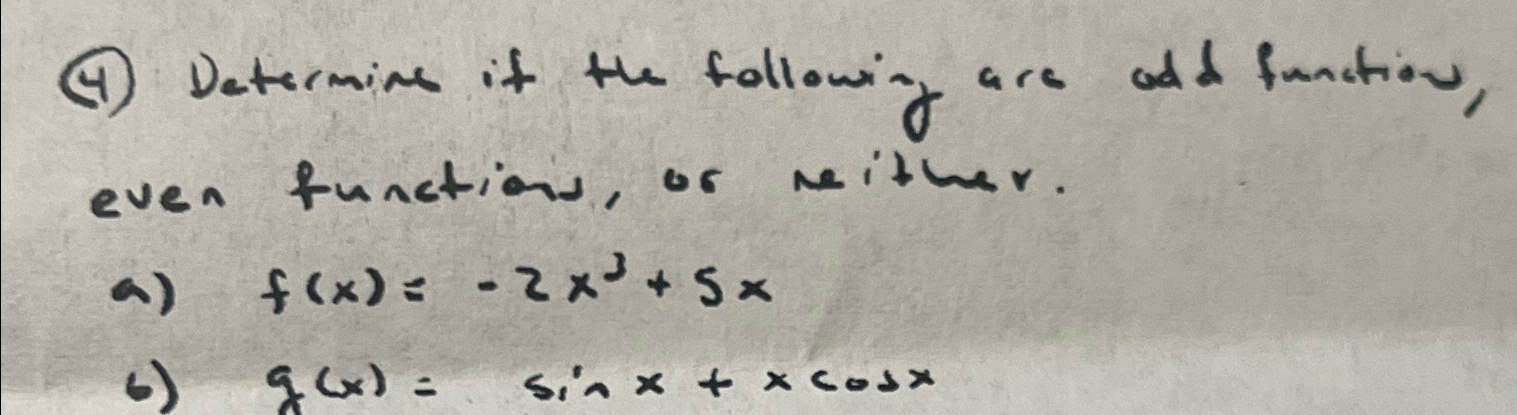 ④ Determine if the following are odd functions,
even functions, or neither.
a) f(x) = -2x³ + 5x
b) g(x) = sin x + x cos x